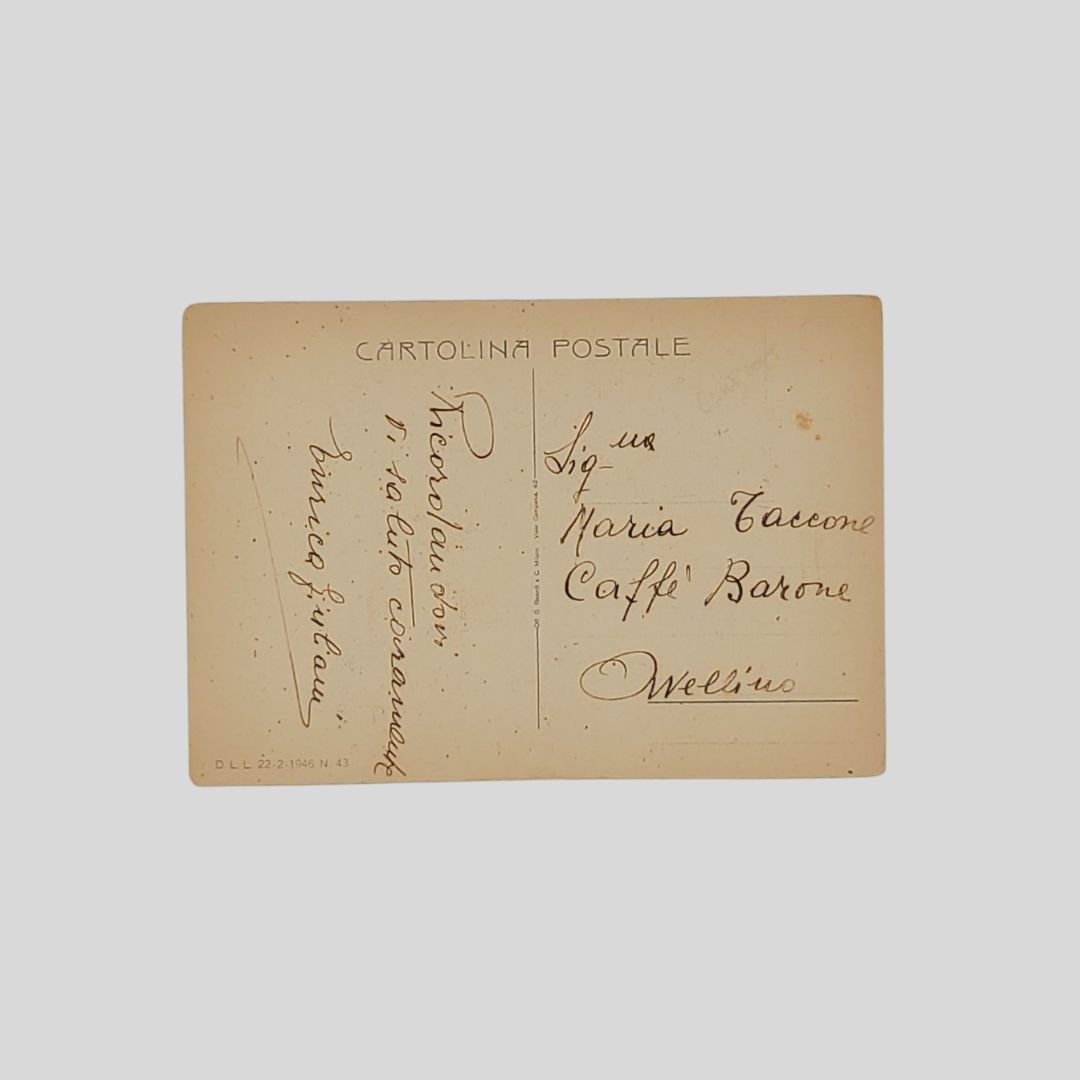 CARTOLINA POSTALE
Ricordandovi
Vi saluto caramente
Enrica Giuliani
Sig.na
Maria Taccone
Caffé Barone
Avellino
D L L 22-2-1946 N 43